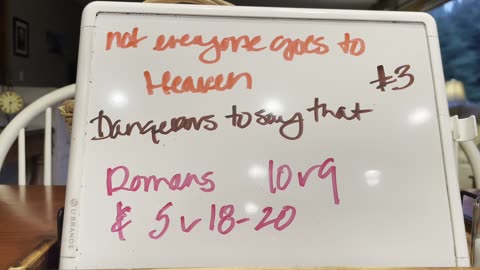 not everyone goes to
Heaven #3
Dangerous to say that
Romans 10 v 9
& 5 v 18-20
U BRANDS